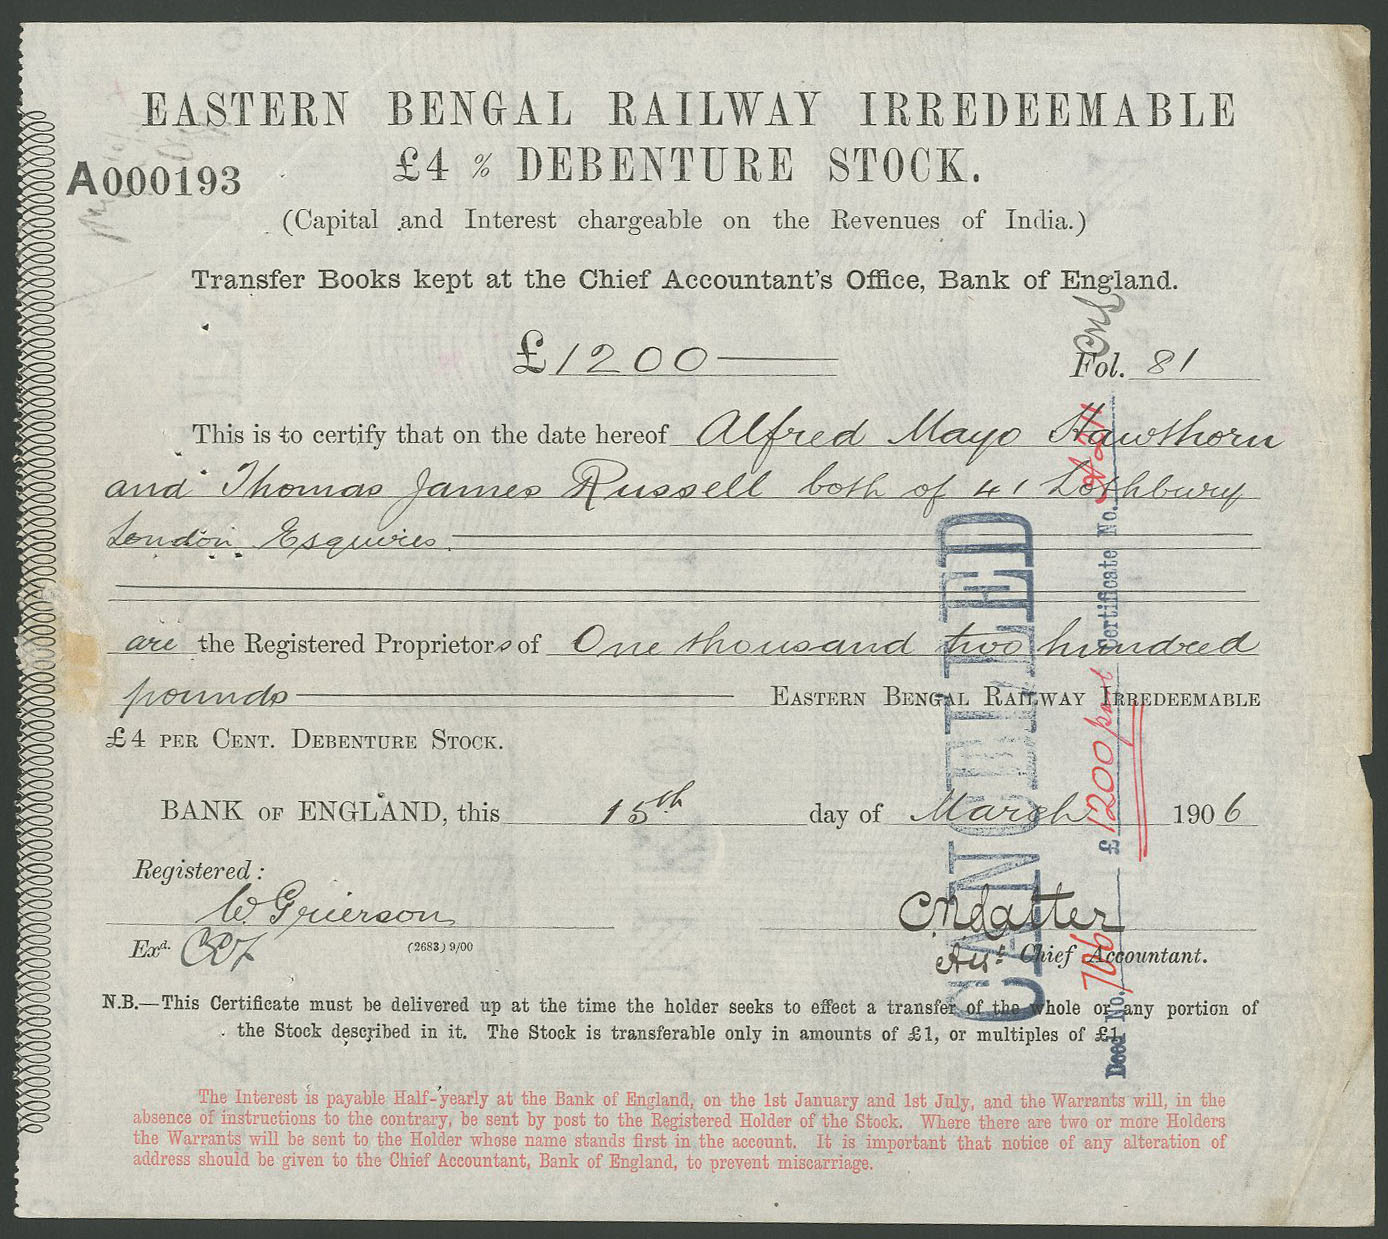 EASTERN BENGAL RAILWAY IRREDEEMABLE
£4 % DEBENTURE STOCK.
A000193
(Capital and Interest chargeable on the Revenues of India.)
Transfer Books kept at the Chief Accountant's Office, Bank of England.
£1200
Fol. 81
This is to certify that on the date hereof Alfred Mayo Hawthorn
and Thomas James Russell both of 41 Lothbury
London Esquires
are the Registered Proprietors of One thousand two hundred
pounds EASTERN BENGAL RAILWAY IRREDEEMABLE
£4 PER CENT. DEBENTURE STOCK.
BANK OF ENGLAND, this 15th day of March 1906
Registered:
W Grierson
Exd.
(2683) 9/00
Asst Chief Accountant.
N.B.—This Certificate must be delivered up at the time the holder seeks to effect a transfer of the whole or any portion of
the Stock described in it. The Stock is transferable only in amounts of £1, or multiples of £1.
The Interest is payable Half-yearly at the Bank of England, on the 1st January and 1st July, and the Warrants will, in the
absence of instructions to the contrary, be sent by post to the Registered Holder of the Stock. Where there are two or more Holders
the Warrants will be sent to the Holder whose name stands first in the account. It is important that notice of any alteration of
address should be given to the Chief Accountant, Bank of England, to prevent miscarriage.
CANCELLED
Deed No. 766 £1200 part Certificate No.